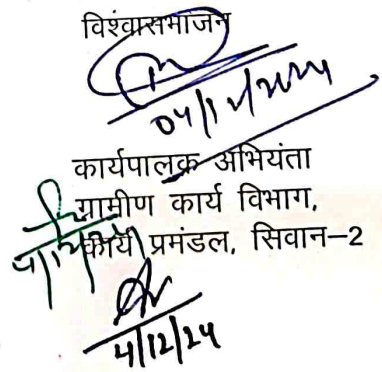 विश्वासभाजन
04/12/2024
कार्यपालक अभियंता
ग्रामीण कार्य विभाग,
कार्य प्रमंडल, सिवान–2
4/12/24